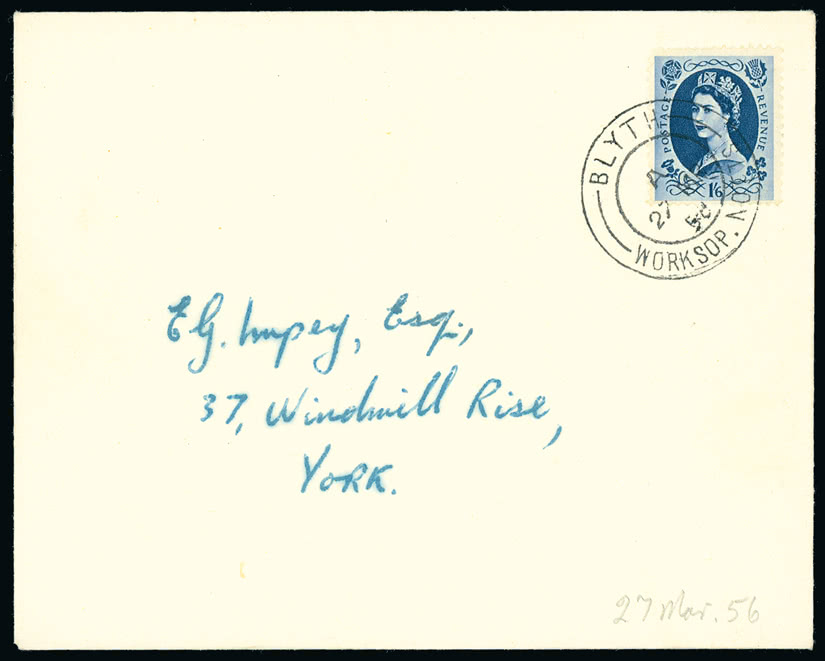 POSTAGE REVENUE
1/6
BLYTH
WORKSOP. NOTTS
A
27
56
E.G. Impey, Esq.,
37, Windmill Rise,
York.
27 Mar. 56